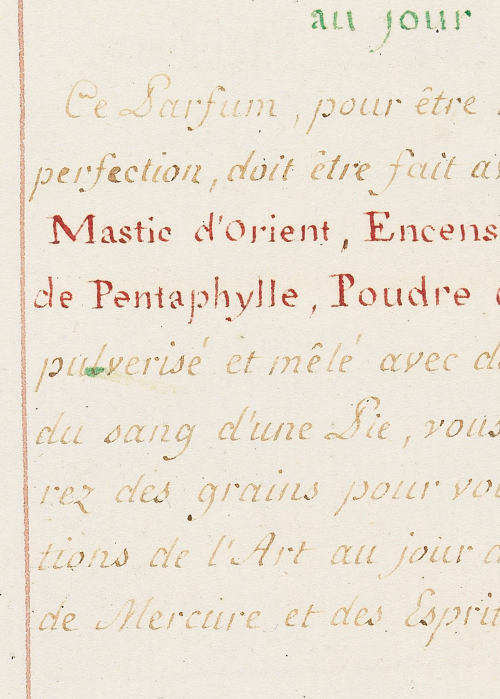 au jour
Ce Parfum, pour être
perfection, doit être fait
Mastic d'Orient, Encens
de Pentaphylle, Poudre
pulverisé et mêlé avec
du sang d'une Pie, vous
rez des grains pour
tions de l'Art au jour
de Mercure, et des Esprit